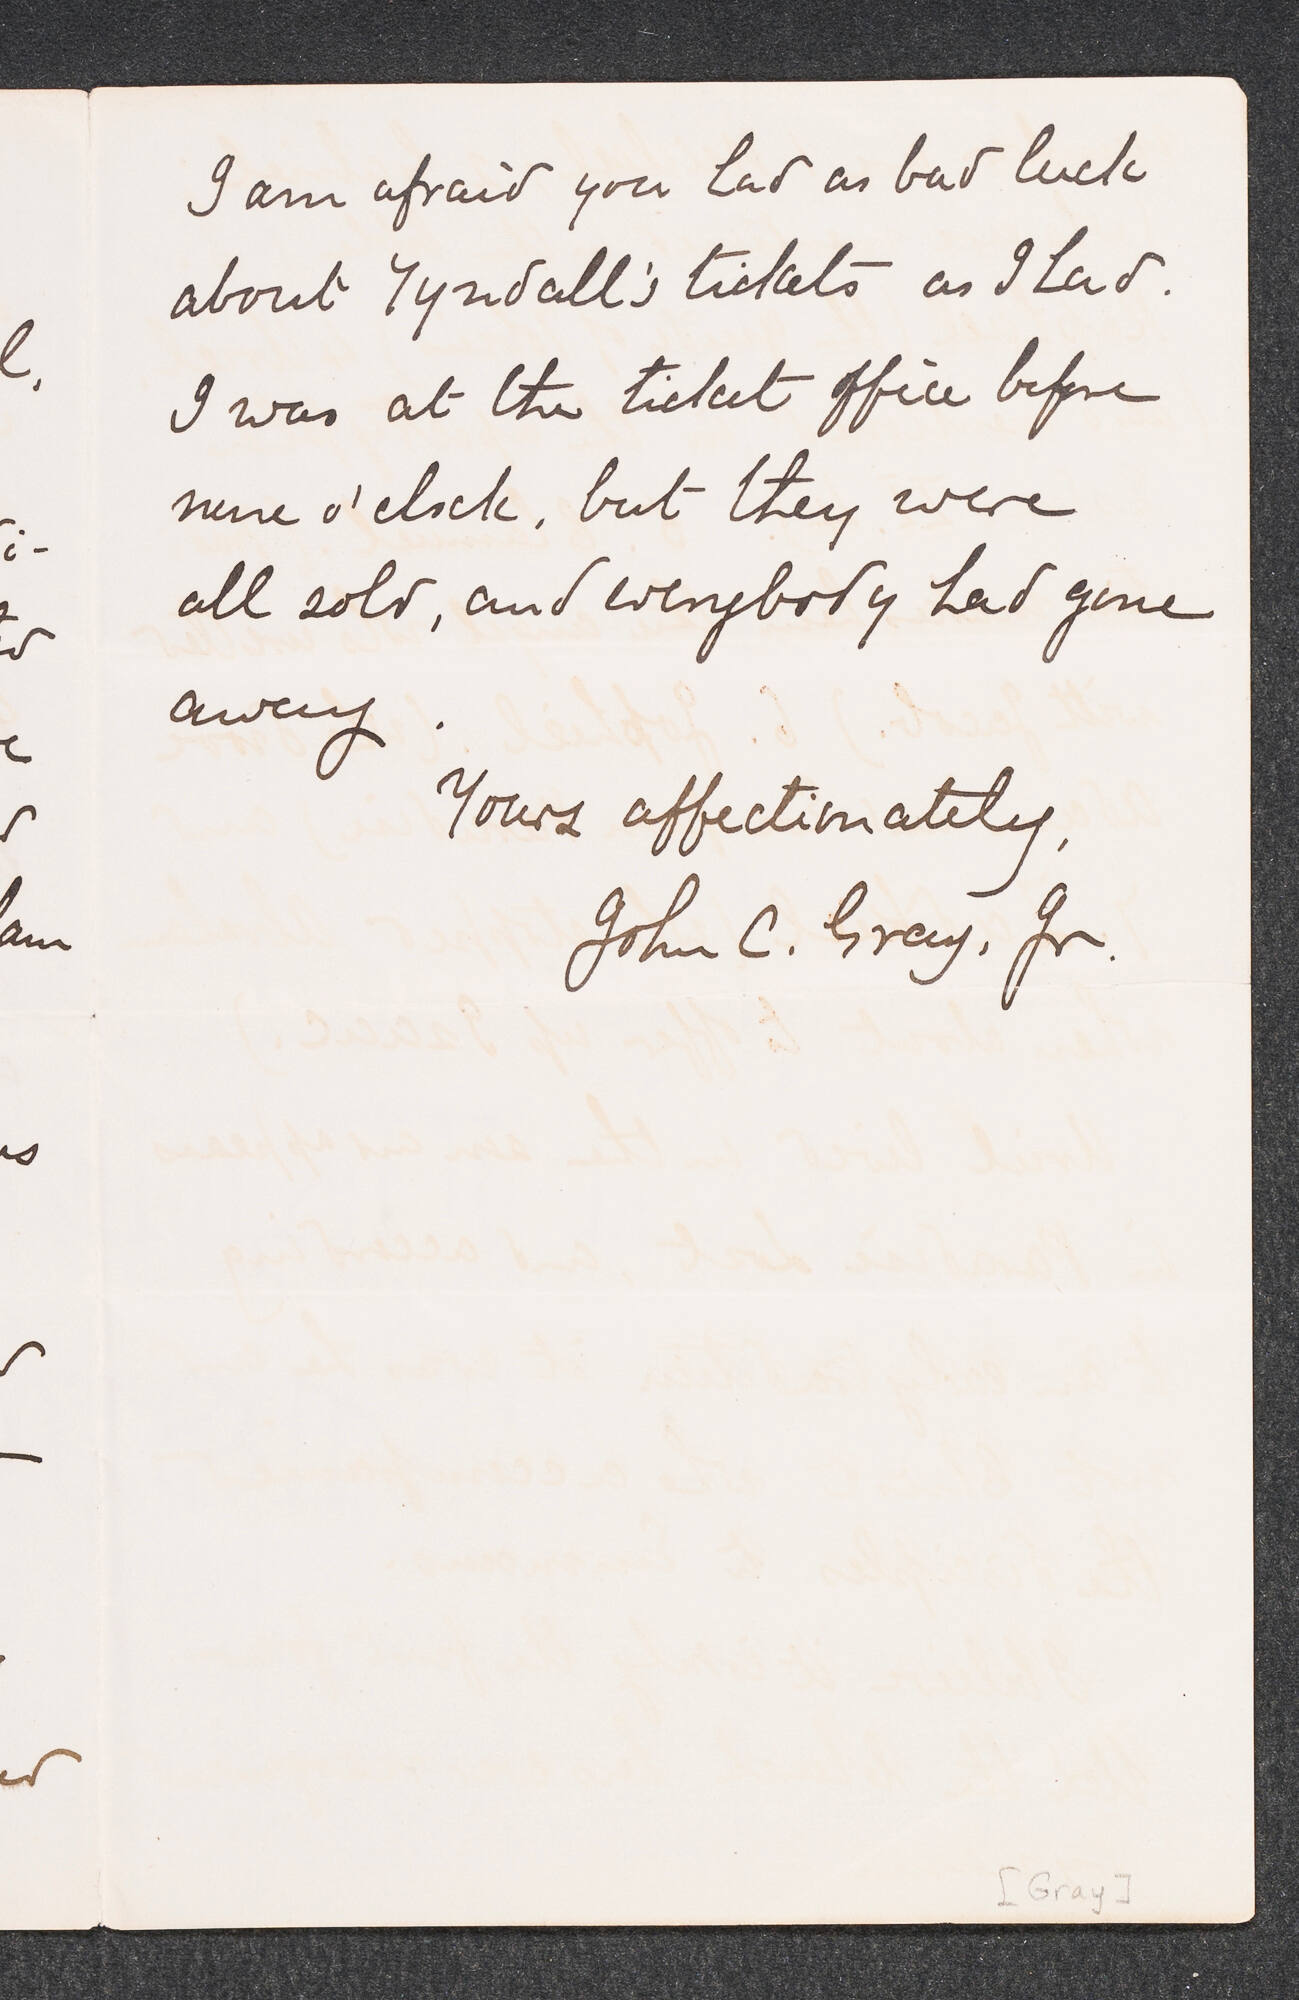 I am afraid you had as bad luck
about Tyndall's tickets as I had.
I was at the ticket office before
nine o'clock, but they were
all sold, and everybody had gone
away.
Yours affectionately,
John C. Gray, Jr.
[Gray]